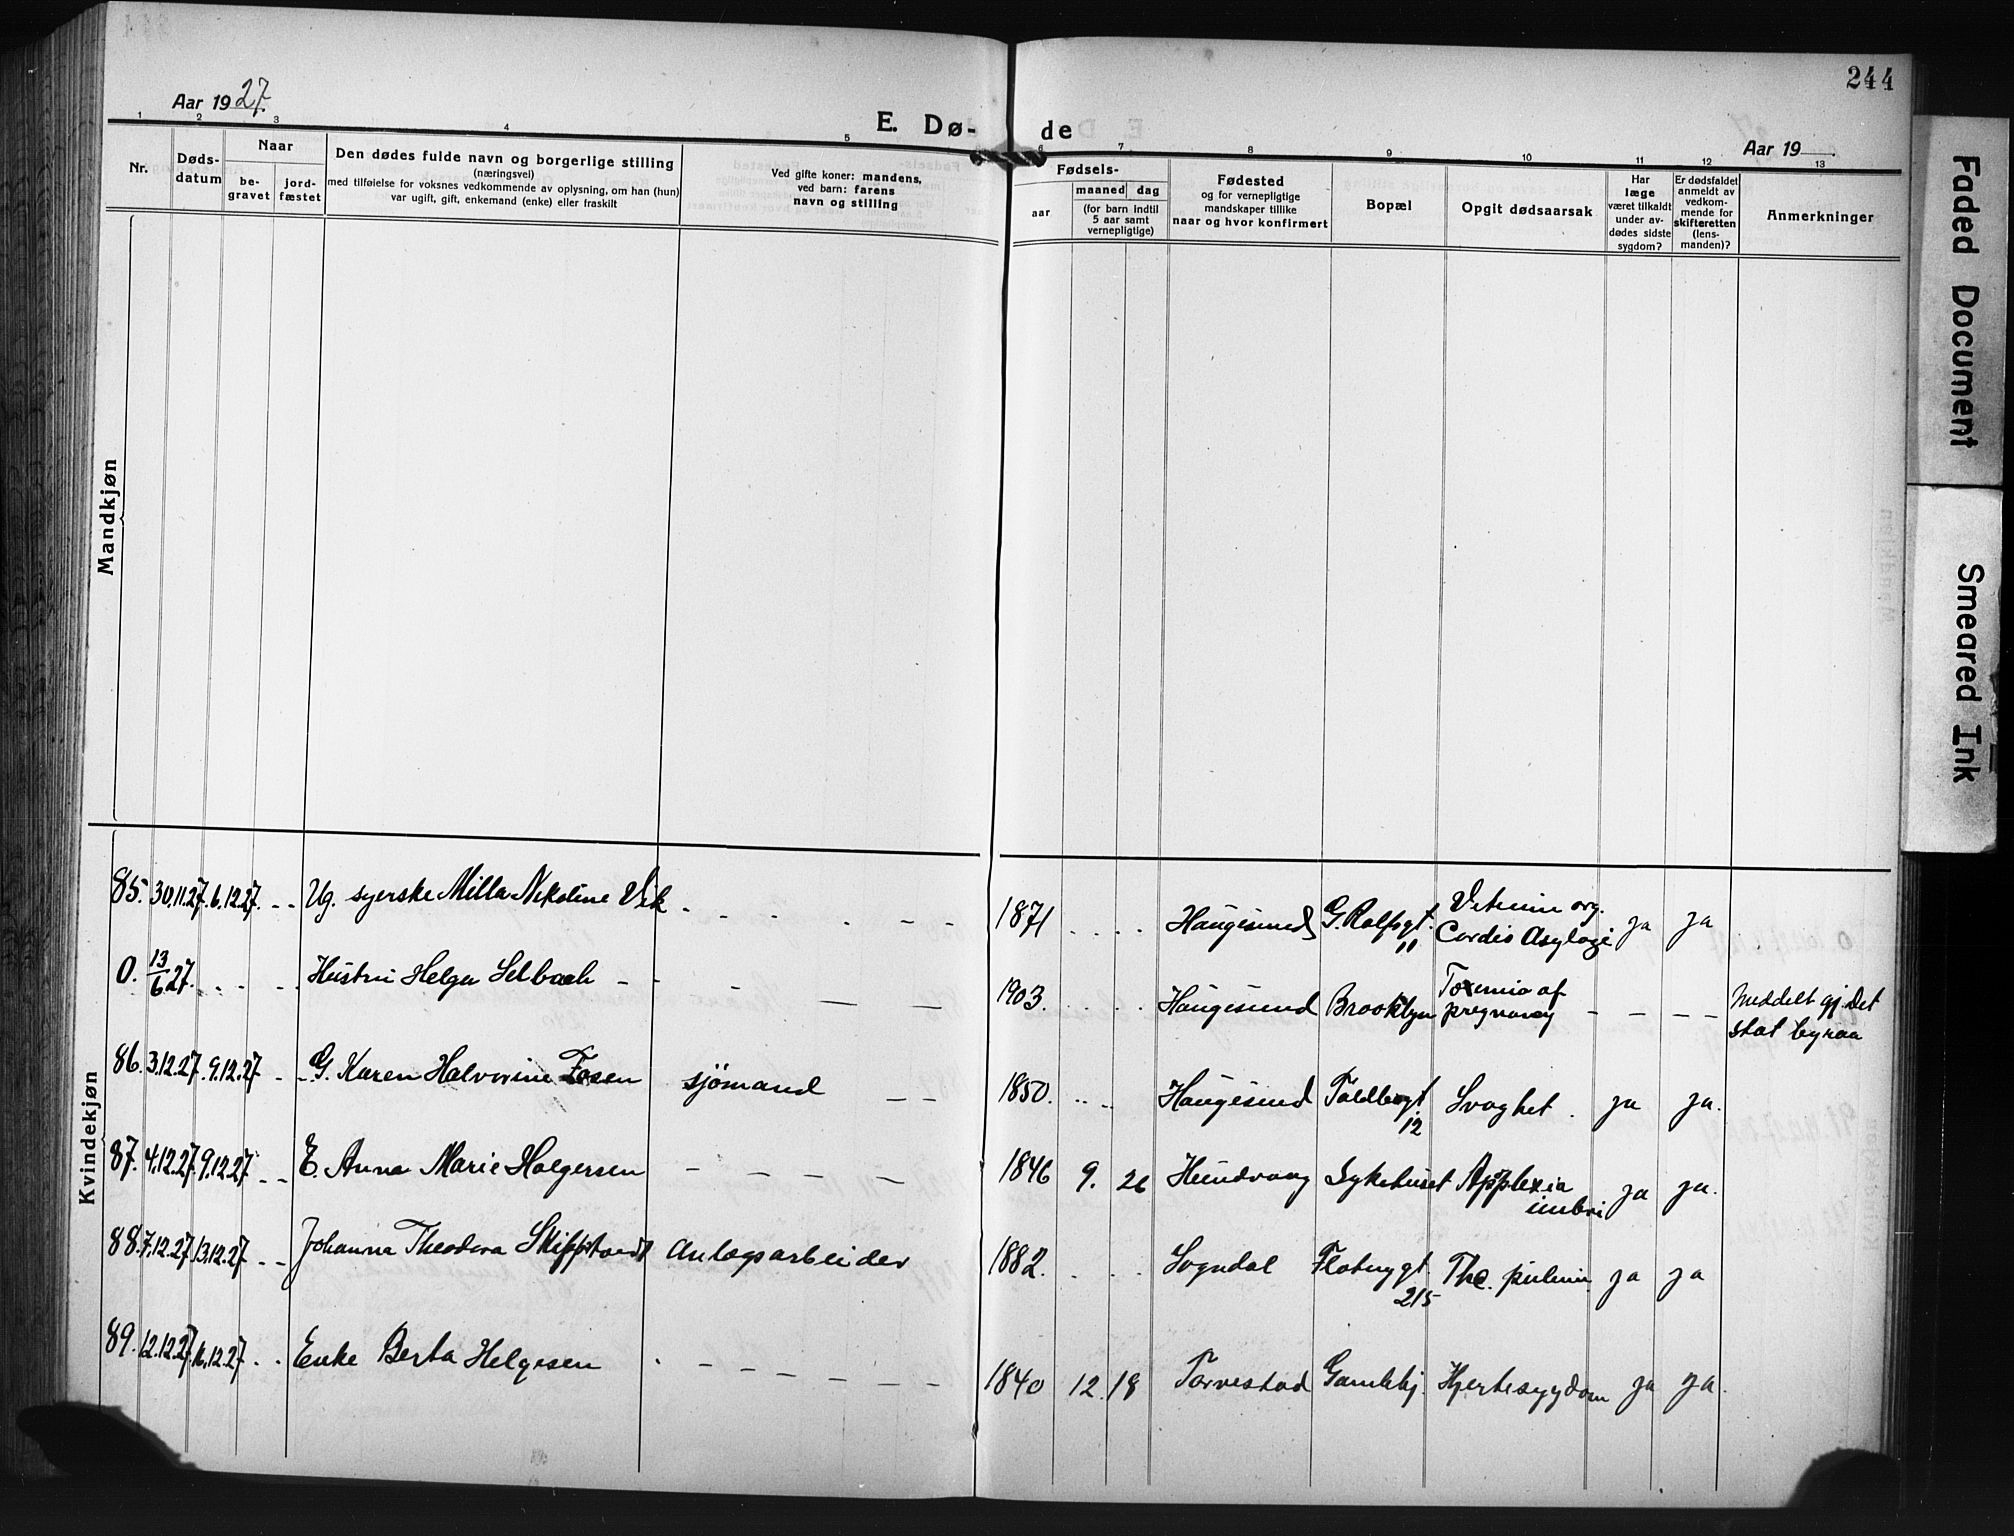 244
Aar 1927.
E. Dø-
de
Aar 19
1 2 3 4 5 6 7 8 9 10 11 12 13
Nr.
Døds-
datum
Naar
be-
gravet
jord-
fæstet
Den dødes fulde navn og borgerlige stilling
(næringsvei)
med tilføielse for voksnes vedkommende av oplysning, om han (hun)
var ugift, gift, enkemand (enke) eller fraskilt
Ved gifte koner: mandens,
ved barn: farens
navn og stilling
Fødsels-
aar
maaned dag
(for barn indtil
5 aar samt
vernepligtige)
Fødested
og for vernepligtige
mandskaper tillike
naar og hvor konfirmert
Bopæl
Opgit dødsaarsak
Har
læge
været tilkaldt
under av-
dødes sidste
sygdom?
Er dødsfaldet
anmeldt av
vedkom-
mende for
skifteretten
(lens-
manden)?
Anmerkninger
Mandkjøn
Kvindekjøn
85. 30.11.27. 6.12.27. - - Ug. syerske Milla Nikoline Vik - - - - - - 1871 - - - - Haugesund G. Rolfsgt. 11 org. Cordis ja ja
0. 13/6 27. - - - - Hustru Helga Selbach - - - - - 1903. - - - - Haugesund Brooklyn Toxemia of pregnancy - - - - Meddelt gj. Det stat byraa
86. 3.12.27. 9.12.27 - - G. Karen Halvorine Fosen sjömand - - 1850. - - - Haugesund 12 Svaghet. ja ja.
87. 4.12.27. 9.12.27 - - E. Anna Marie Holgersen - - - - 1846 9. 26 Hundvaag Sykehuset Applexia ja ja.
88. 7.12.27 13.12.27 - - Johanna Theodora Anlægsarbeider 1882. - - - Sogndal Flotmygt 215 Tbc. pulm. ja ja
89. 12.12.27 16.12.27 - - Enke Berta Helgesen - - - - - - 1840 12. 18 Torvestad Gamlehj. Hjertesygdom ja ja.
Faded Document
Smeared Ink